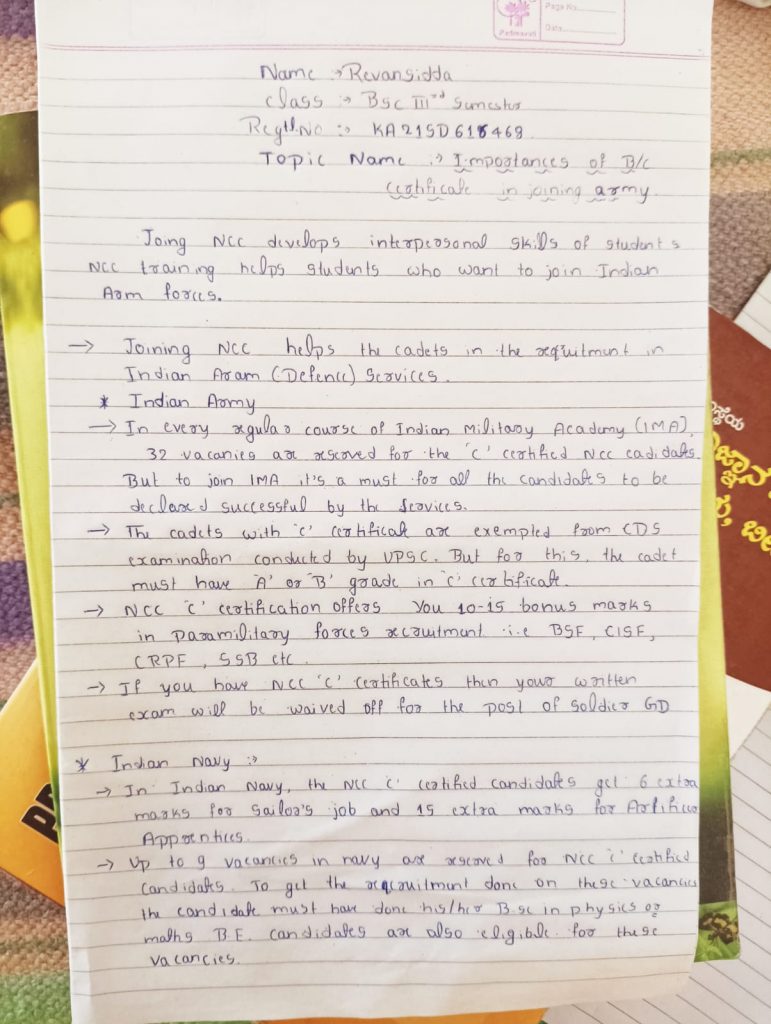 Page No.
Date
Padmavati
Name :- Revansidda
Class :- BSC IIIrd Semester
Regtl.No :- KA21SD618469
Topic Name :- Importances of B/c
certificate in joining army.
Joing NCC develops interpersonal skills of student s
NCC training helps students who want to join Indian
Arm forces.
→ Joining NCC helps the cadets in the requitment in
Indian Aram (Defence) Services.
* Indian Army
→ In every regular course of Indian Military Academy (IMA),
32 vacanies are reserved for the 'C' certified NCC cadidates.
But to join IMA it's a must for all the candidates to be
declared successful by the services.
→ The cadets with 'c' certificate are exempted from CDS
examination conducted by UPSC. But for this, the cadet
must have 'A' or 'B' grade in 'c' certificate.
→ NCC 'C' certification offers You 10-15 bonus marks
in Paramilitary forces recruitment i.e BSF, CISF,
CRPF, SSB etc
→ If you have NCC 'C' certificates then your written
exam will be waived off for the post of soldier GD
* Indian Navy :-
→ In Indian Navy, the NCC 'C' certified candidates get 6 extra
marks for sailor's job and 15 extra marks for Artificer
Apprentices.
→ Up to 9 vacancies in navy are reserved for NCC 'C' certified
candidates. To get the reqcruitment done on these vacancies
the candidate must have done his/her B.sc in physics or
maths B.E. candidates are also eligible for these
vacancies.